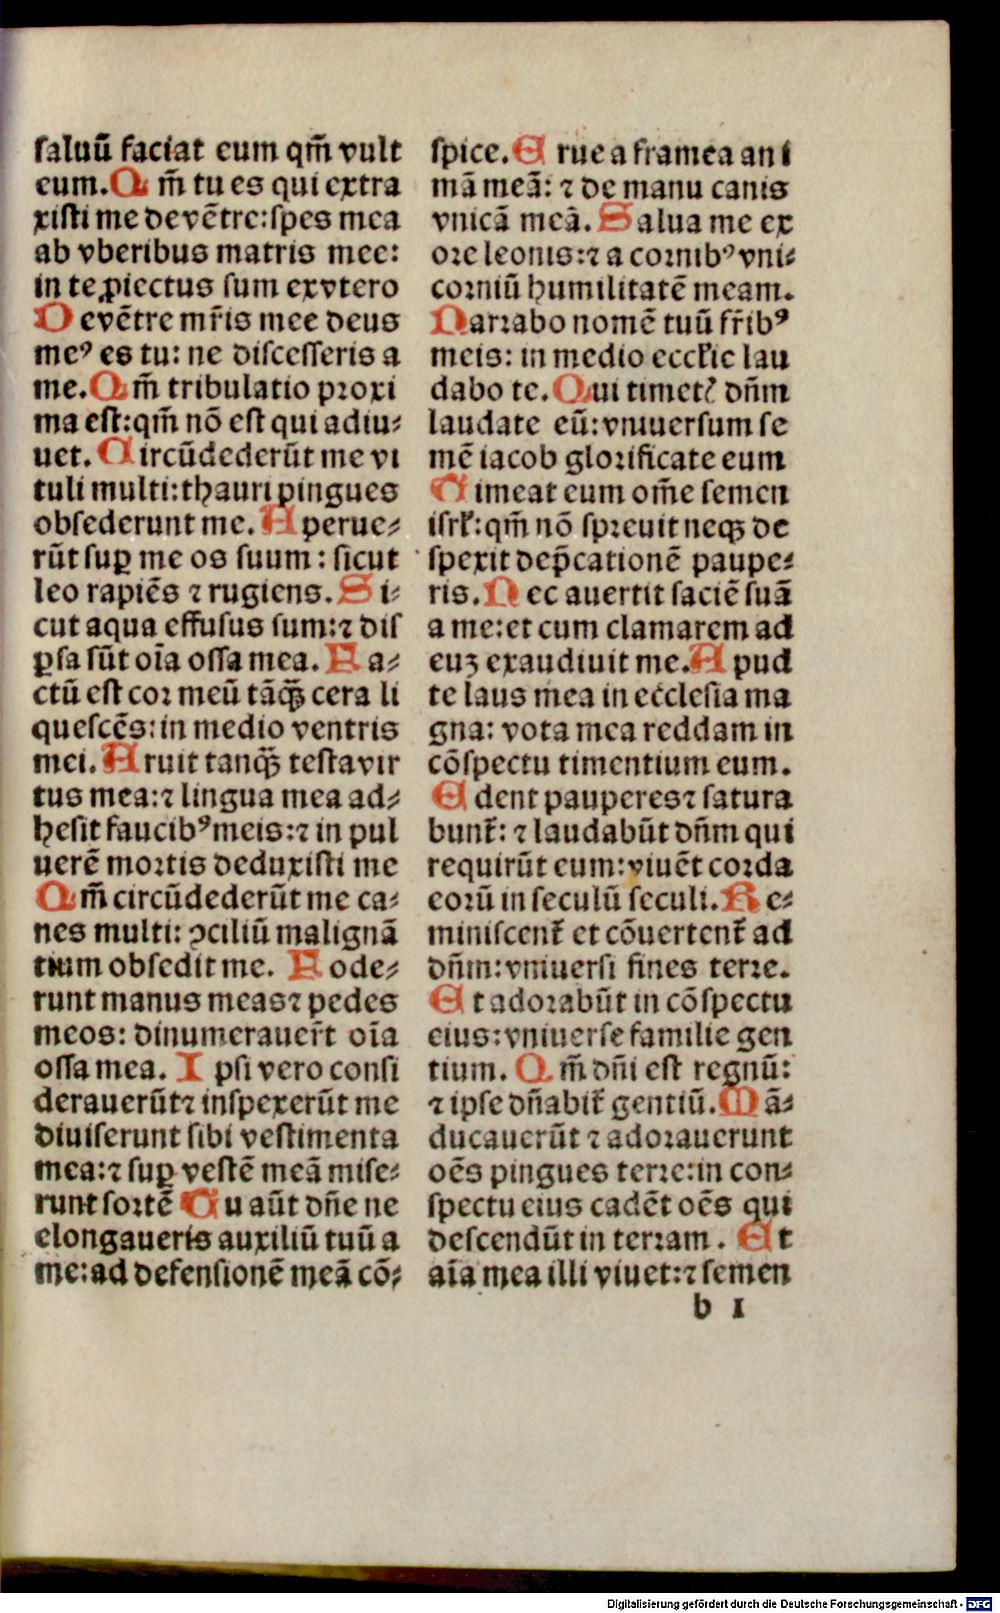 ſaluū faciat eum qm̄ vult
eum. Qm̄ tu es qui extra
xiſti me de vētre: ſpes mea
ab vberibus matris mee:
in te ꝓiectus ſum ex vtero
De vētre mr̄is mee deus
meꝰ es tu: ne diſceſſeris a
me. Qm̄ tribulatio proxi
ma eſt: qm̄ nō eſt qui adiu⸗
uet. Circūdederūt me vi
tuli multi: thauri pingues
obſederunt me. Aperue⸗
rūt ſuꝑ me os ſuum: ſicut
leo rapiēs ⁊ rugiens. Si⸗
cut aqua effuſus ſum: ⁊ diſ
ꝑſa ſūt oīa oſſa mea. Fa⸗
ctū eſt cor meū tāqꝫ cera li
queſcēs: in medio ventris
mei. Aruit tanqꝫ teſta vir
tus mea: ⁊ lingua mea ad⸗
heſit faucibꝰ meis: ⁊ in pul
uerē mortis deduxiſti me
Qm̄ circūdederūt me ca⸗
nes multi: ꝯciliū malignā
tium obſedit me. Fode⸗
runt manus meas ⁊ pedes
meos: dinumerauer̄t oīa
oſſa mea. Ipſi vero conſi
derauerūt ⁊ inſpexerūt me
diuiſerunt ſibi veſtimenta
mea: ⁊ ſuꝑ veſtē meā miſe⸗
runt ſortē Tu aūt dn̄e ne
elongaueris auxiliū tuū a
me: ad defenſionē meā cō⸗
ſpice. Erue a framea ani
mā meā: ⁊ de manu canis
vnicā meā. Salua me ex
ore leonis: ⁊ a cornibꝰ vni⸗
corniū humilitatē meam.
Narrabo nomē tuū fr̄ibꝰ
meis: in medio eccl̄ie lau
dabo te. Qui timetꝭ dn̄m
laudate eū: vniuerſum ſe
mē iacob glorificate eum
Timeat eum om̄e ſemen
iſrl̄: qm̄ nō ſpreuit neqꝫ de
ſpexit dep̄cationē paupe⸗
ris. Nec auertit faciē ſuā
a me: et cum clamarem ad
euꝫ exaudiuit me. Apud
te laus mea in eccleſia ma
gna: vota mea reddam in
cōſpectu timentium eum.
Edent pauperes ⁊ ſatura
bunt᷑: ⁊ laudabūt dn̄m qui
requirūt eum: viuēt corda
eorū in ſeculū ſeculi. Re⸗
miniſcent᷑ et cōuertent᷑ ad
dn̄m: vniuerſi fines terre.
Et adorabūt in cōſpectu
eius: vniuerſe familie gen
tium. Qm̄ dn̄i eſt regnū:
⁊ ipſe dn̄abit᷑ gentiū. Mā⸗
ducauerūt ⁊ adorauerunt
oēs pingues terre: in con⸗
ſpectu eius cadēt oēs qui
deſcendūt in terram. Et
aīa mea illi viuet: ⁊ ſemen
b 1
Digitalisierung gefördert durch die Deutsche Forschungsgemeinschaft - DFG